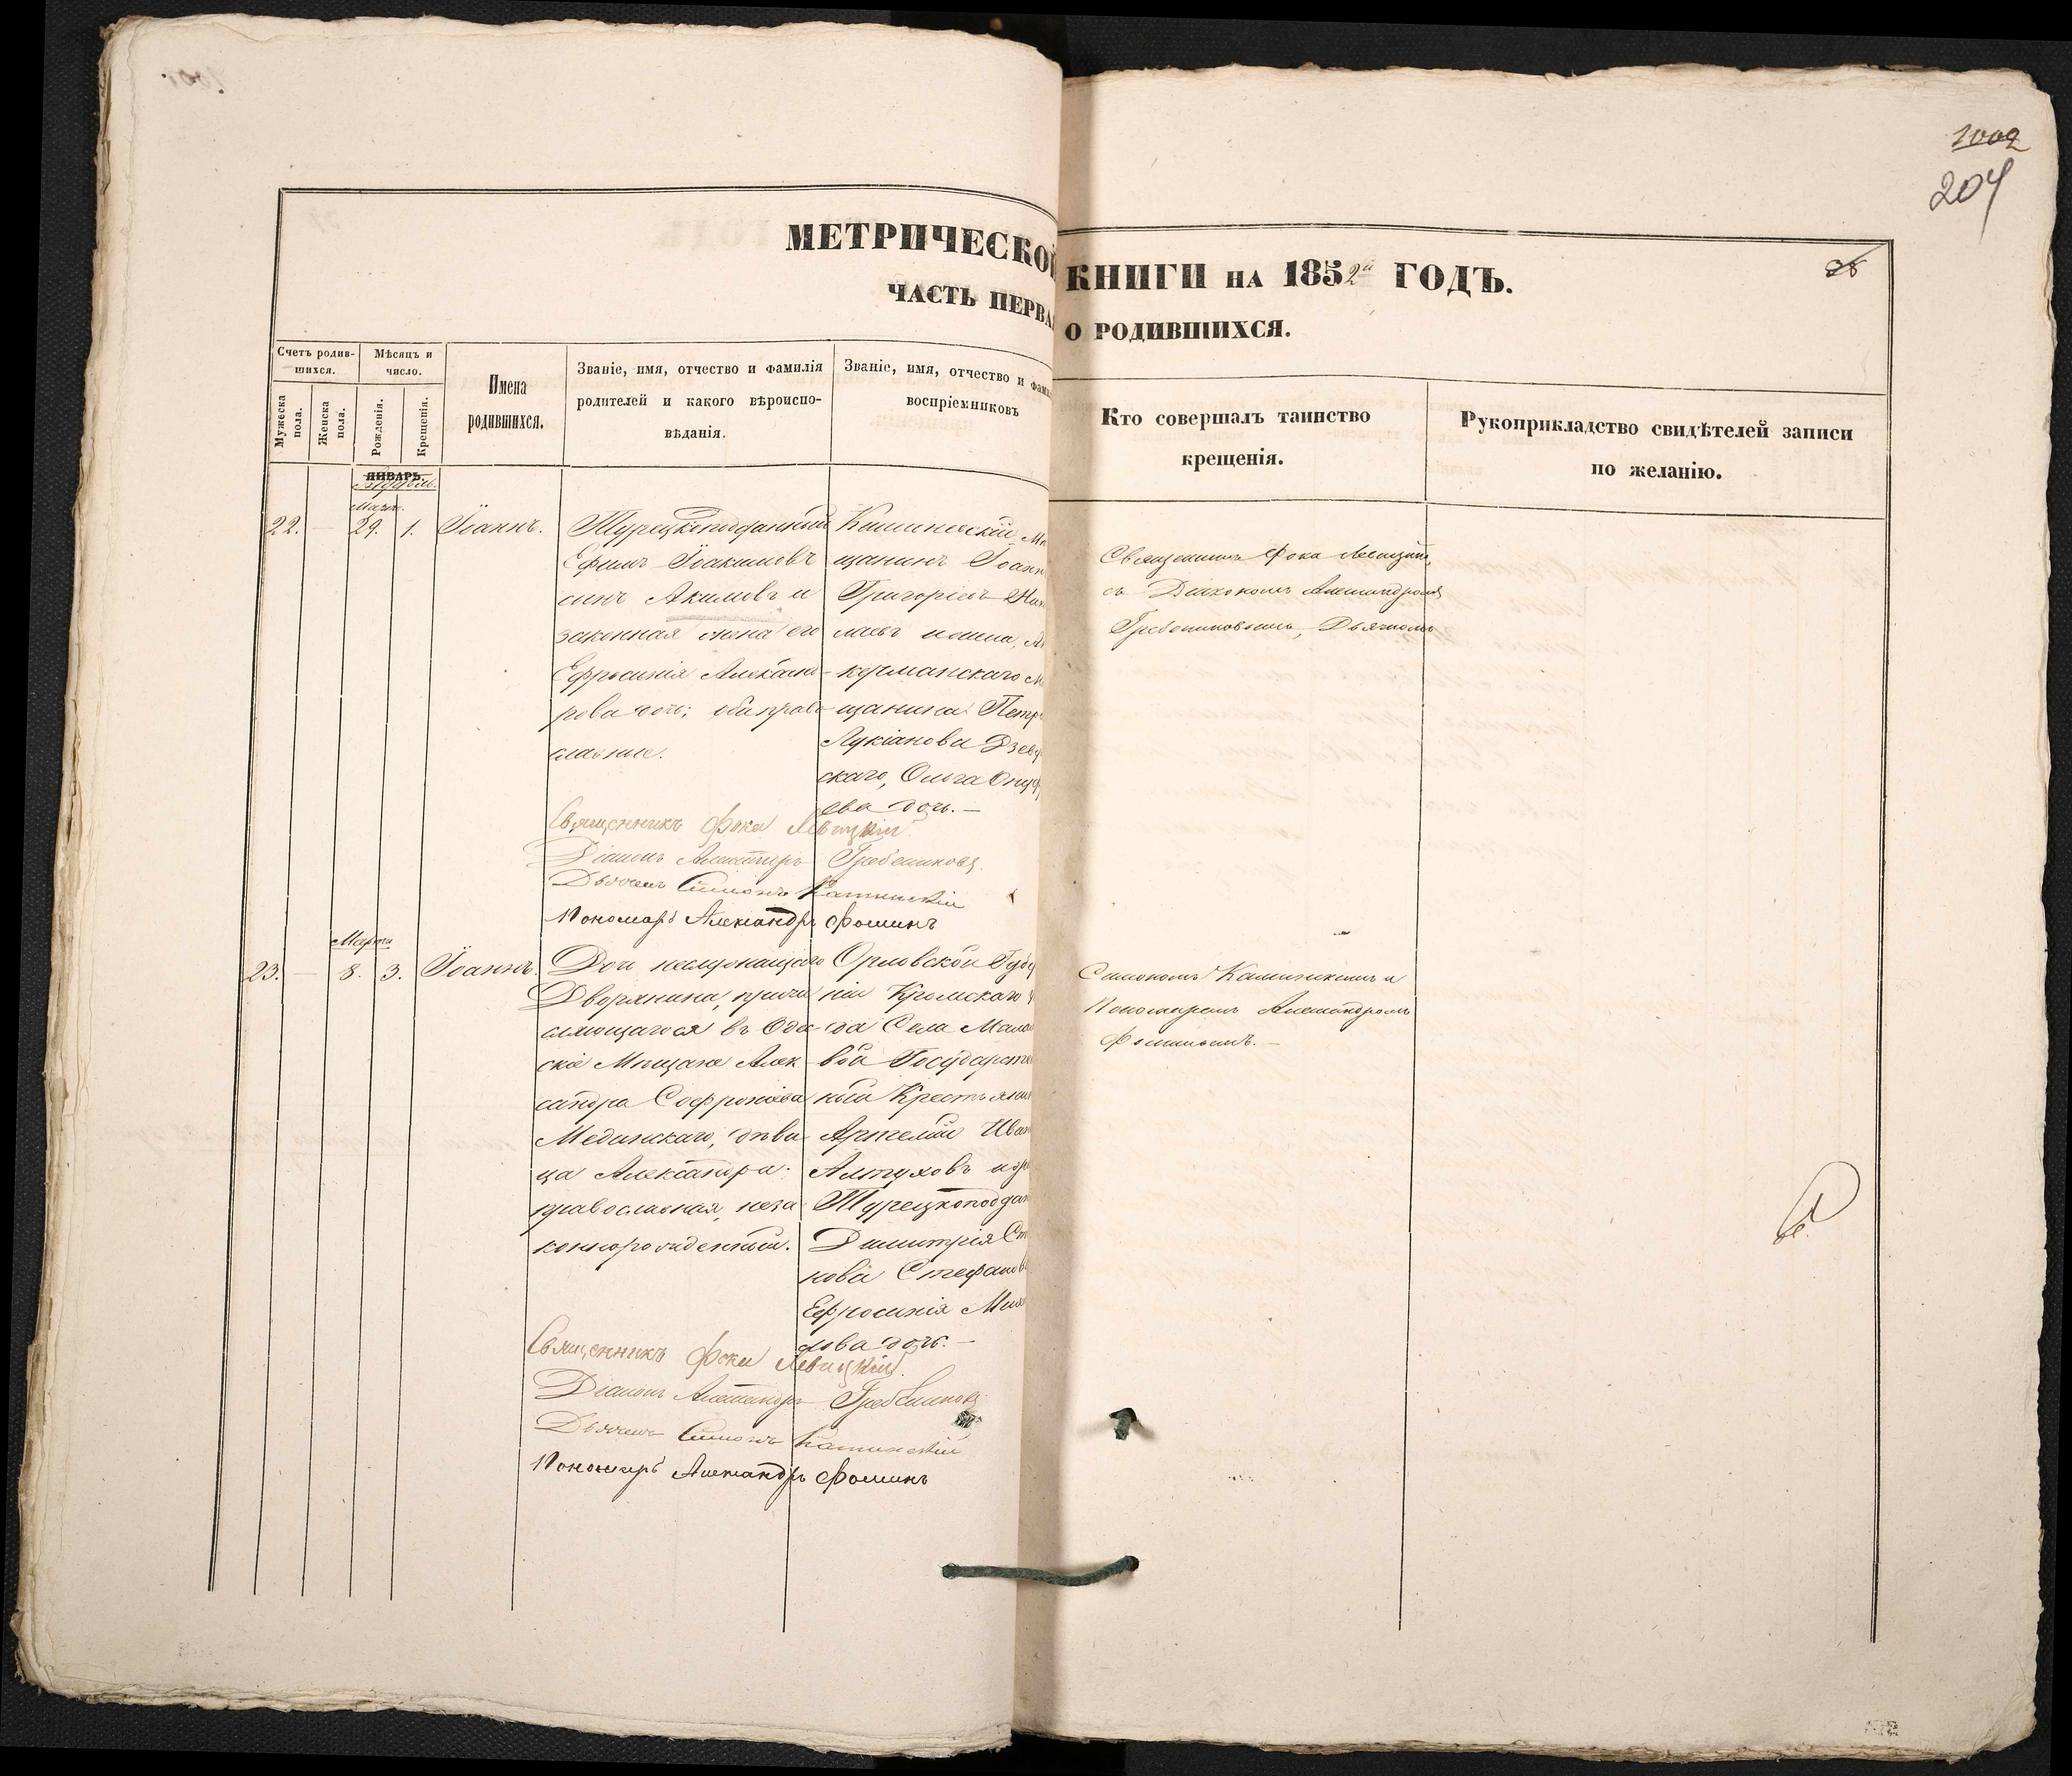 1002
204
МЕТРИЧЕСКОЙ КНИГИ НА 1852й ГОДЪ.
28
ЧАСТЬ ПЕРВА О РОДИВШИХСЯ.
Счетъ родив-
шихся.
Мужеска пола.
Женска пола.
Мѣсяцъ и
число.
Рожденія.
Крещенія.
Имена
родившихся.
Званіе, имя, отчество и фамилія
родителей и какого вѣроиспо-
вѣданія.
Званіе, имя, отчество и фами
воспріемниковъ
Кто совершалъ таинство
крещенія.
Рукоприкладство свидѣтелей записи
по желанію.
ЯНВАРЬ.
22. — 29. 1. Іоаннъ.
Турецкоподданный
Ефимъ Іоакимовъ
сынъ Акимовъ и
законная жена его
Ефросинія Александ-
рова дочь; оба право-
славные.
мѣ
щанинъ Іоанн
Григорьевъ
керманскаго м
щанина Петр
Лукіанова
скаго, Ольга Онуф
ева дочь. —
Священникъ Фока Левицкій,
съ Діакономъ Александромъ
Гребенниковымъ, Дьячкомъ
Священникъ Фока Левицкій
Діаконъ Александръ Гребенниковъ
Дьячекъ Симонъ Каминскій
Пономарь Александръ Фоминъ
Марта
23. — 8. 3. Іоаннъ.
Дочь неслужащаго
Дворянина, причи
сляющагося въ Оде-
скіе Мѣщане Алек-
сандра Софроніева
Мединскаго, дѣви-
ца Александра.
православная, неза-
коннорожденный.
Орловской Губе
ніи Кромскаго у
да Села
вой Государстве
ный Крестьянин
Артемій Иван
Алтуховъ и
Турецкоподдан
Димитрія Ст
нова Стефанов
Ефросинія Миха
лова дочь. —
Симономъ Каминскимъ и
Пономаремъ Александромъ
Фоминымъ. —
Священникъ Фока Левицкій
Діаконъ Александръ Гребенниковъ
Дьячекъ Симонъ Каминскій
Пономарь Александръ Фоминъ